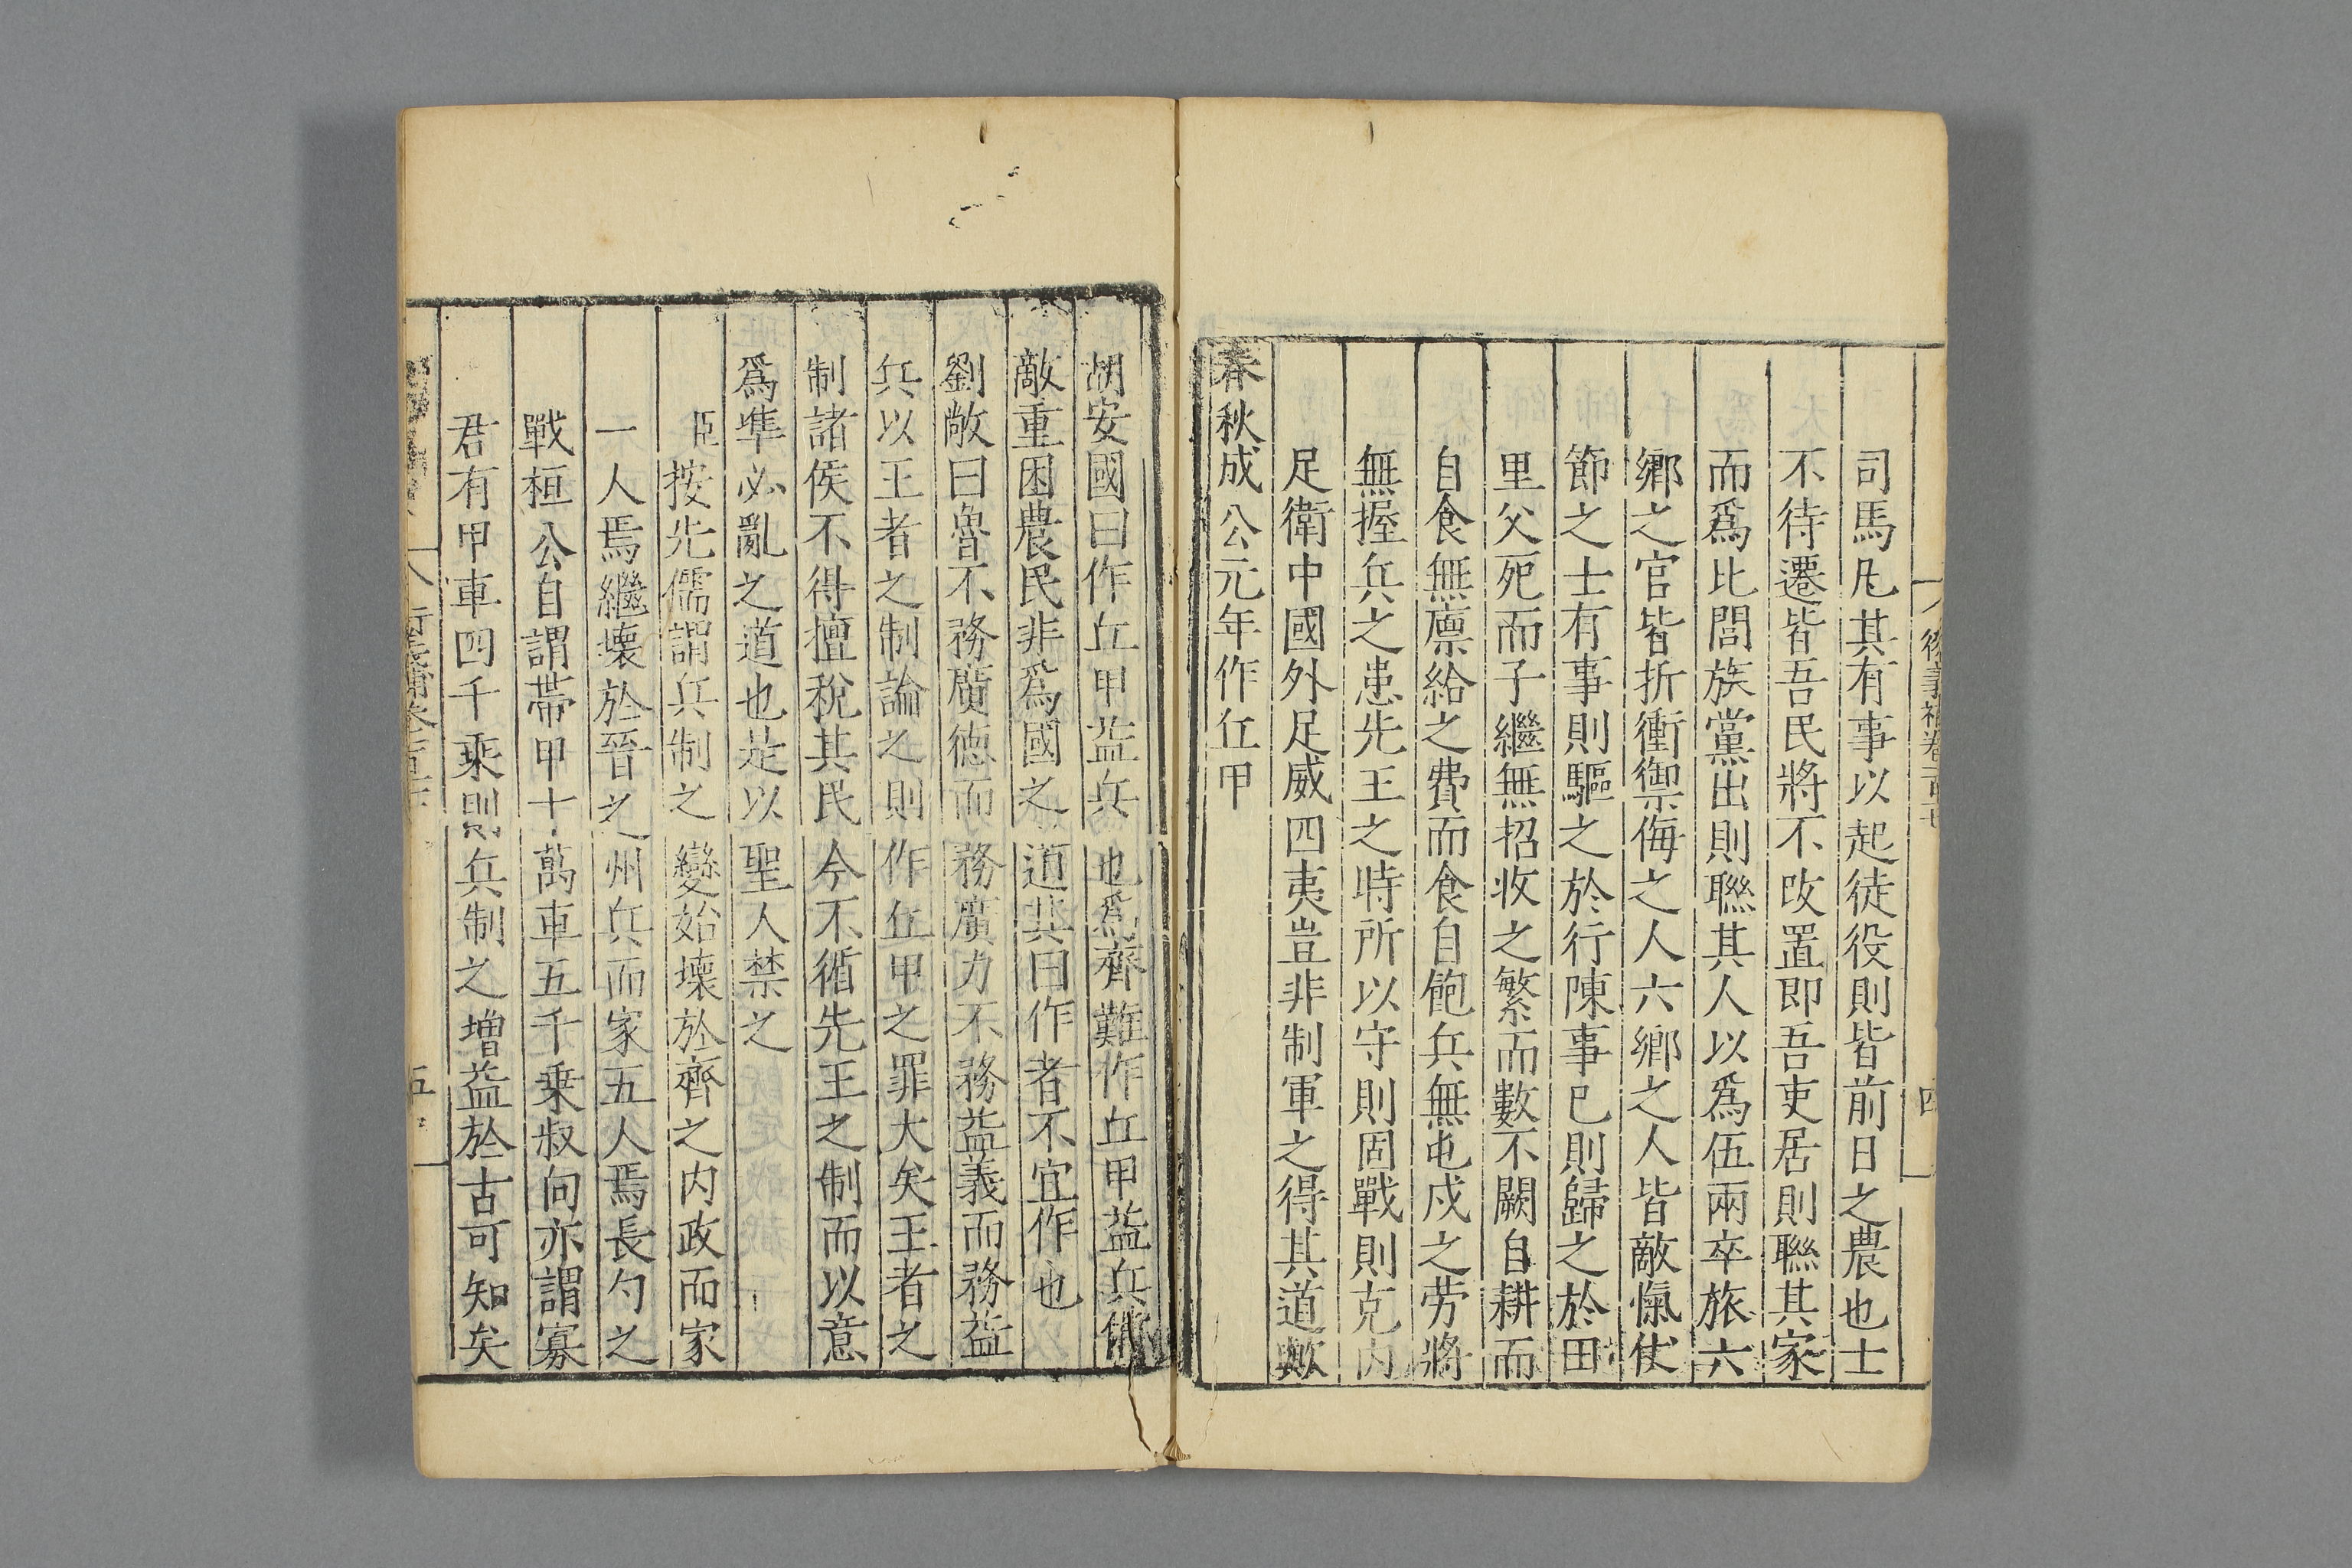 司馬凡其有事以起徒役則皆前日之農也士
不待遷皆吾民將不改置即吾吏居則聯其家
而爲比閭族黨出則聯其人以爲伍兩卒旅六
鄉之官皆折衝禦侮之人六鄉之人皆敵愾仗
節之士有事則驅之於行陳事已則歸之於田
里父死而子繼無招收之繁而數不闕自耕而
自食無廪給之費而食自飽兵無屯戍之劳將
無握兵之患先王之時所以守則固戰則克内
足衛中國外足威四夷豈非制軍之得其道歟
春秋成公元年作丘甲
胡安國曰作丘甲益兵也爲齊難作丘甲益兵備
敵重困農民非爲國之道其曰作者不宜作也
劉敞曰魯不務廣德而務廣力不務益義而務益
兵以王者之制論之則作丘甲之罪大矣王者之
制諸侯不得擅稅其民今不循先王之制而以意
爲準必亂之道也是以聖人禁之
臣按先儒謂兵制之變始壞於齊之内政而家
一人焉繼壞於晉之州兵而家五人焉長勺之
戰桓公自謂帶甲十萬車五千乗叔向亦謂寡
君有甲車四千乘則兵制之増益於古可知矣